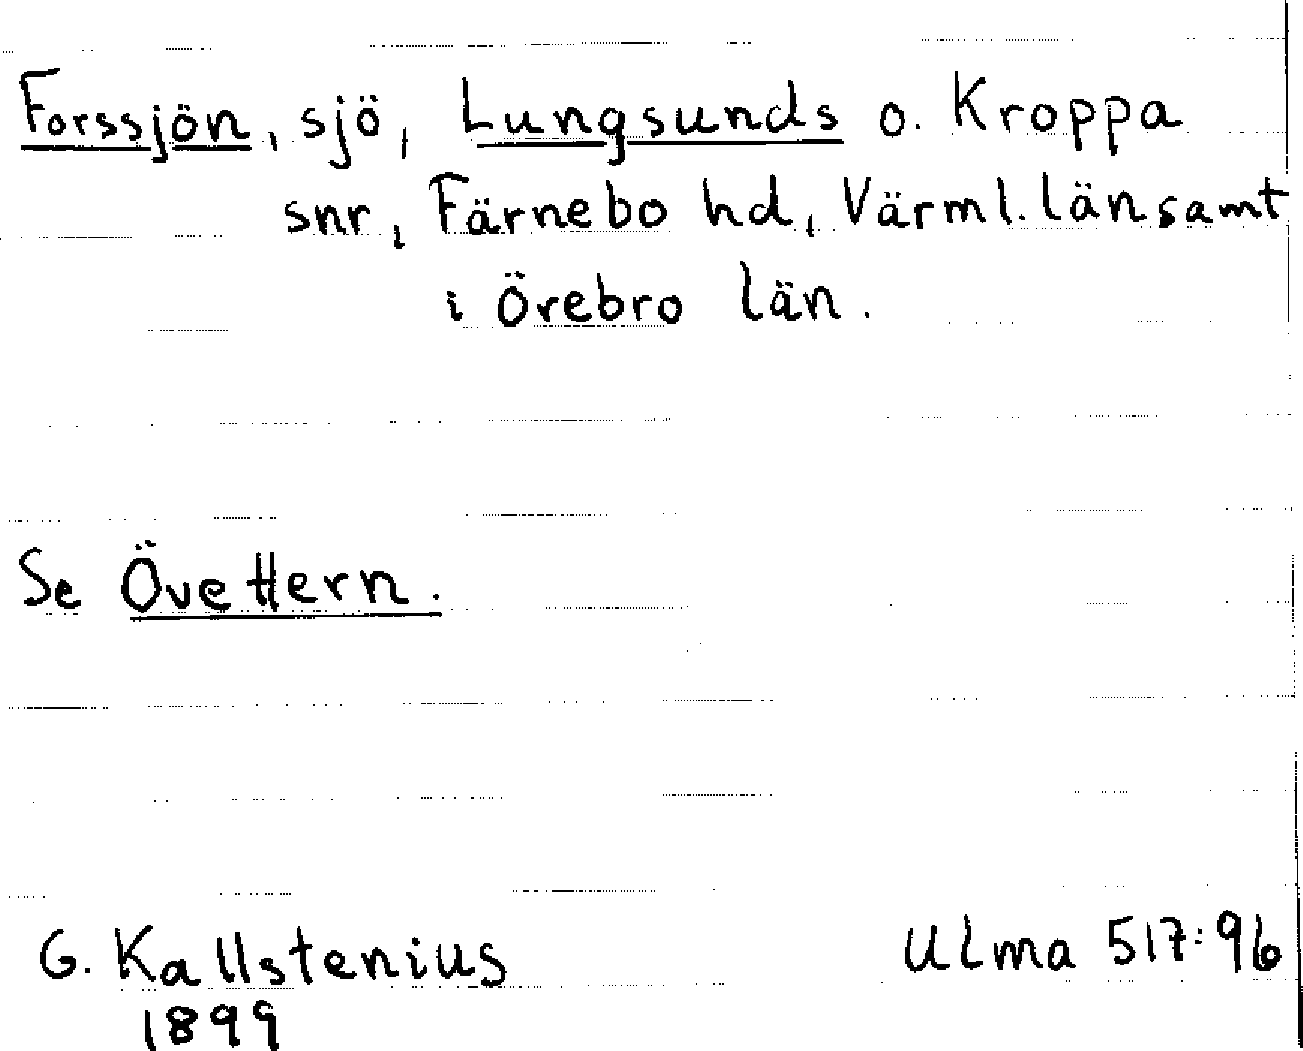 Forssjön, sjö, Lungsunds o. Kroppa
snr, Färnebo hd, Värml. län samt
i Örebro län.
Se Övettern.
G. Kallstenius Ulma 517:96
1899